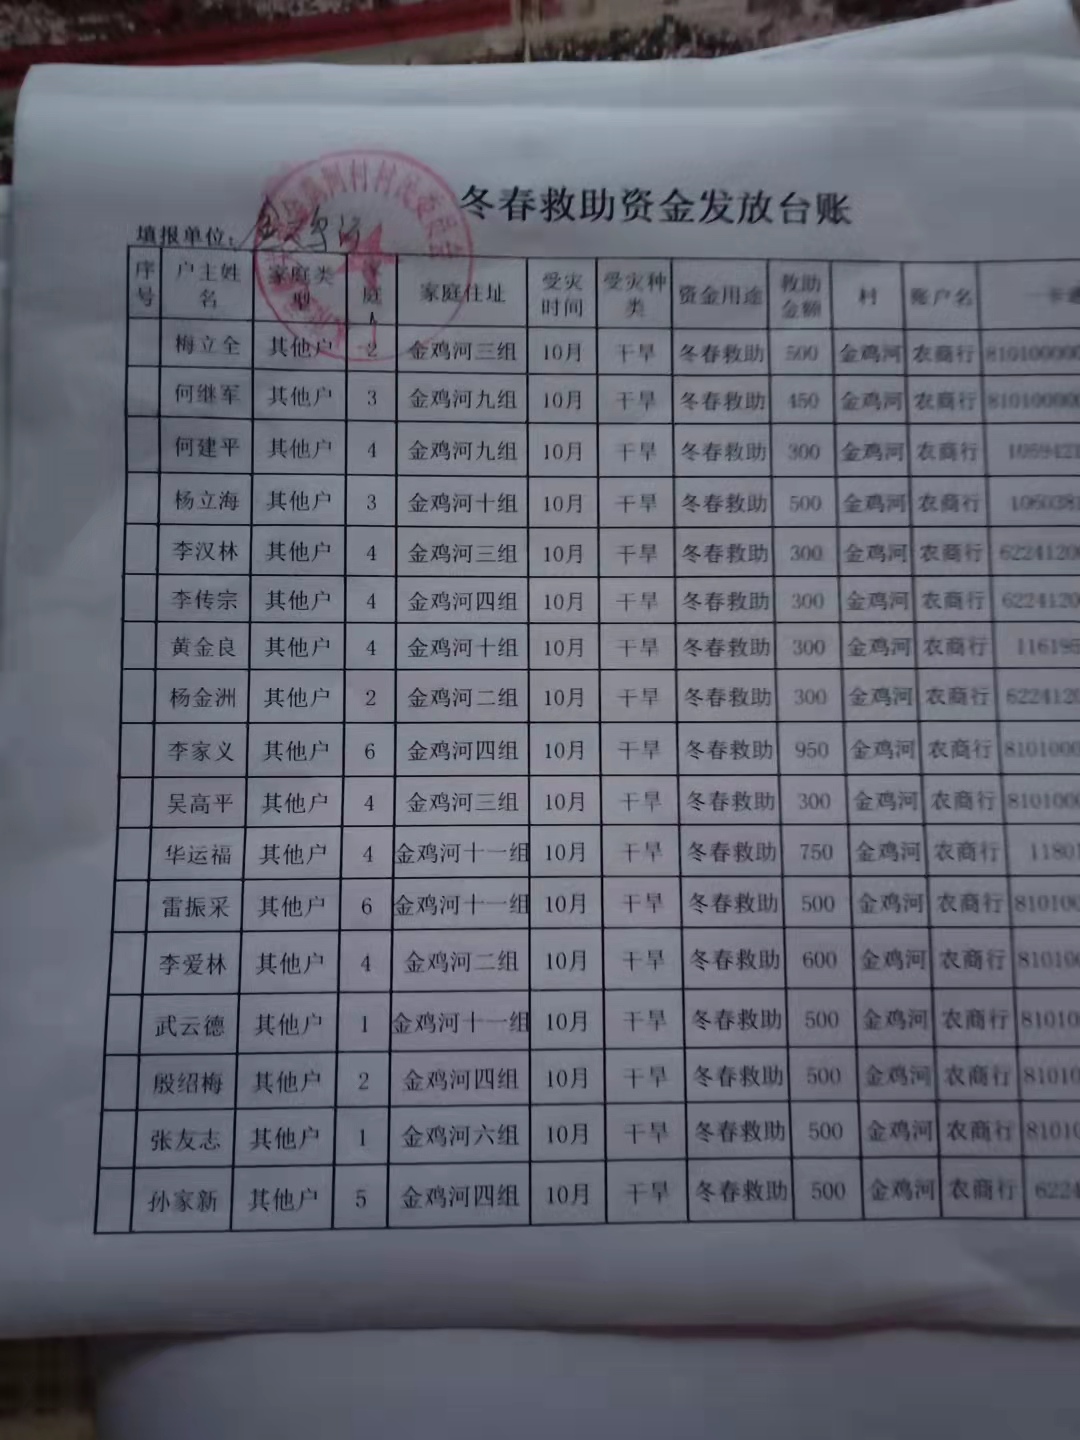 冬春救助资金发放台账
填报单位: 金鸡河
序号 户主姓名 家庭类型 家庭人 家庭住址 受灾时间 受灾种类 资金用途 救助金额 村 账户名 一卡通
梅立全 其他户 2 金鸡河三组 10月 干旱 冬春救助 500 金鸡河 农商行 810100000
何继军 其他户 3 金鸡河九组 10月 干旱 冬春救助 450 金鸡河 农商行 810100000
何建平 其他户 4 金鸡河九组 10月 干旱 冬春救助 300 金鸡河 农商行 1059421
杨立海 其他户 3 金鸡河十组 10月 干旱 冬春救助 500 金鸡河 农商行 1060381
李汉林 其他户 4 金鸡河三组 10月 干旱 冬春救助 300 金鸡河 农商行 62241200
李传宗 其他户 4 金鸡河四组 10月 干旱 冬春救助 300 金鸡河 农商行 6224120
黄金良 其他户 4 金鸡河十组 10月 干旱 冬春救助 300 金鸡河 农商行 116195
杨金洲 其他户 2 金鸡河二组 10月 干旱 冬春救助 300 金鸡河 农商行 6224120
李家义 其他户 6 金鸡河四组 10月 干旱 冬春救助 950 金鸡河 农商行 8101000
吴高平 其他户 4 金鸡河三组 10月 干旱 冬春救助 300 金鸡河 农商行 8101000
华运福 其他户 4 金鸡河十一组 10月 干旱 冬春救助 750 金鸡河 农商行 11801
雷振采 其他户 6 金鸡河十一组 10月 干旱 冬春救助 500 金鸡河 农商行 810100
李爱林 其他户 4 金鸡河二组 10月 干旱 冬春救助 600 金鸡河 农商行 810100
武云德 其他户 1 金鸡河十一组 10月 干旱 冬春救助 500 金鸡河 农商行 81010
殷绍梅 其他户 2 金鸡河四组 10月 干旱 冬春救助 500 金鸡河 农商行 81010
张友志 其他户 1 金鸡河六组 10月 干旱 冬春救助 500 金鸡河 农商行 81010
孙家新 其他户 5 金鸡河四组 10月 干旱 冬春救助 500 金鸡河 农商行 6224